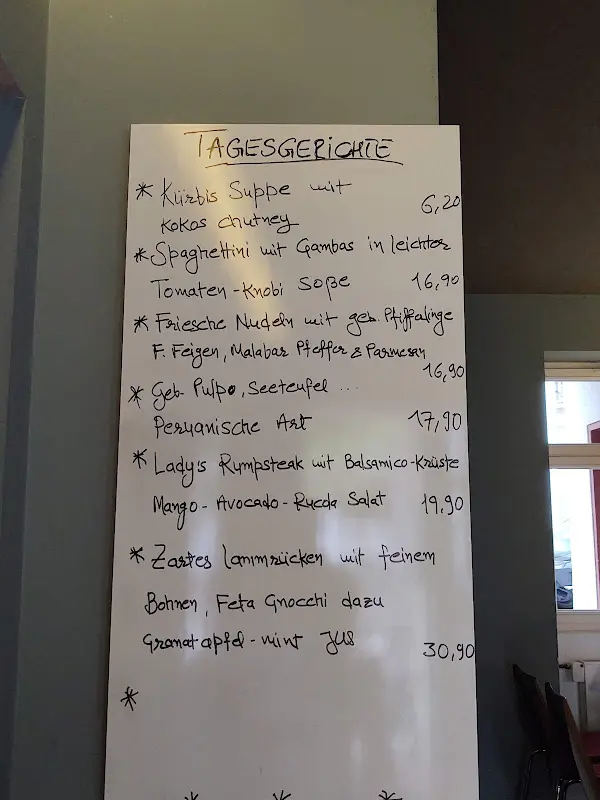 TAGESGERICHTE
* Kürbis Suppe mit
kokos chutney 6,20
* Spaghettini mit Gambas in leichter
Tomaten-Knobi Soße 16,90
* Friesche Nudeln mit geb. Pfiffalinge
F. Feigen, Malabar Pfeffer & Parmesan
16,90
* Geb. Pulpo, Seeteufel ...
Peruanische Art 17,90
* Lady's Rumpsteak mit Balsamico-Krüste
Mango-Avocado-Rucola Salat 19,90
* Zartes lammrücken mit feinem
Bohnen, Feta Gnocchi dazu
Granatapfel-mint Jus 30,90
*
* * *